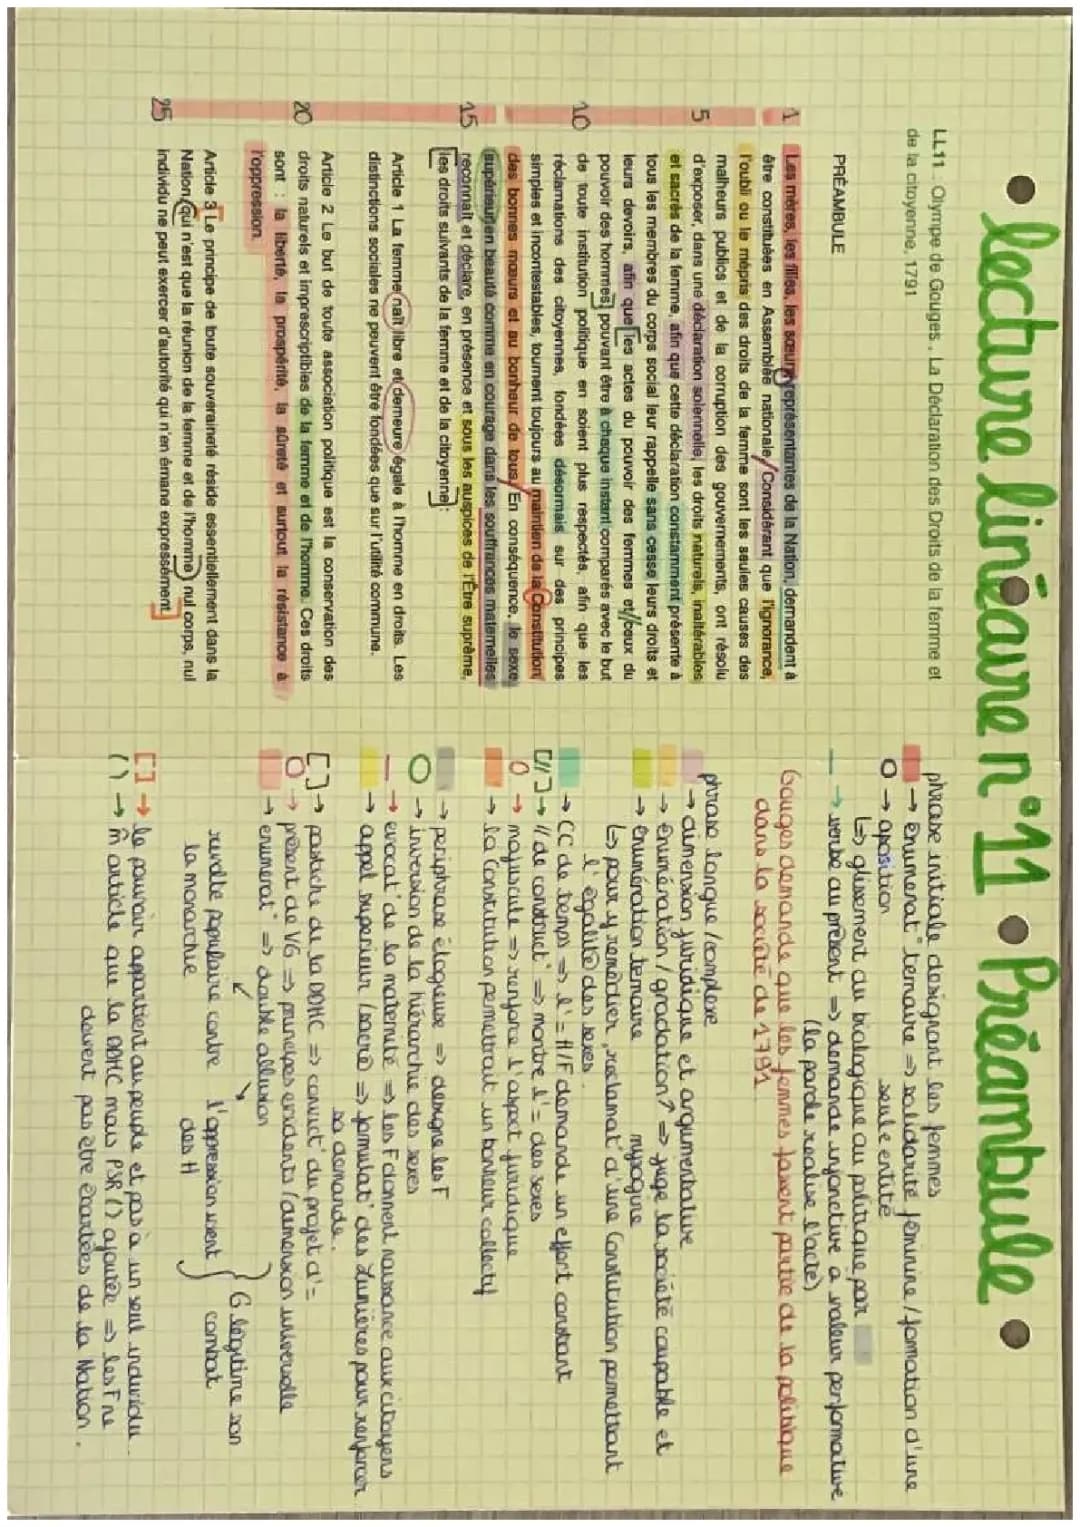 • lecture linéaire n°11 • Préambule •
LL11 . Olympe de Gouges , La Déclaration des Droits de la femme et
de la citoyenne, 1791
PRÉAMBULE
1 Les mères, les filles, les sœurs, représentantes de la Nation, demandent à
être constituées en Assemblée nationale. Considérant que l'ignorance,
l'oubli ou le mépris des droits de la femme sont les seules causes des
malheurs publics et de la corruption des gouvernements, ont résolu
5 d'exposer, dans une déclaration solennelle, les droits naturels, inaltérables
et sacrés de la femme, afin que cette déclaration constamment présente à
tous les membres du corps social leur rappelle sans cesse leurs droits et
leurs devoirs, afin que les actes du pouvoir des femmes et ceux du
pouvoir des hommes, pouvant être à chaque instant comparés avec le but
10 de toute institution politique en soient plus respectés, afin que les
réclamations des citoyennes, fondées désormais sur des principes
simples et incontestables, tournent toujours au maintien de la Constitution
des bonnes mœurs et au bonheur de tous. En conséquence, le sexe
supérieur en beauté comme en courage dans les souffrances maternelles
15 reconnaît et déclare, en présence et sous les auspices de l'Être suprême,
les droits suivants de la femme et de la citoyenne :
Article 1 La femme naît libre et demeure égale à l'homme en droits. Les
distinctions sociales ne peuvent être fondées que sur l'utilité commune.
Article 2 Le but de toute association politique est la conservation des
20 droits naturels et imprescriptibles de la femme et de l'homme. Ces droits
sont : la liberté, la prospérité, la sûreté et surtout la résistance à
l'oppression.
Article 3 Le principe de toute souveraineté réside essentiellement dans la
Nation, qui n'est que la réunion de la femme et de l'homme ; nul corps, nul
25 individu ne peut exercer d'autorité qui n'en émane expressément.
phrase initiale désignant les femmes
→ énumerat° ternaire ⇒ solidarité féminine / formation d'une
seule entité
O → aposition
↳ glissement du biologique au politique par
→ verbe au présent ⇒ demande injonctive à valeur performative
(la parole réalise l'acte)
Gouges demande que les femmes fassent partie de la politique
dans la société de 1791
phrase longue / complexe
→ dimension juridique et argumentative
→ énumération / gradation ↗ ⇒ juge la société coupable et
→ énumération ternaire
mysogine
↳ pour y remédier, réclamat° d'une Constitution permettant
l'égalité des sexes.
→ CC de temps ⇒ l'= H/F demande un effort constant
[//] → // de construct° ⇒ montre l'= des sexes
O → majuscule ⇒ renforce l'aspect juridique
→ la Constitution permettrait un bonheur collectif
→ periphrase élogieuse ⇒ désigne les F
O → inversion de la hiérarchie des sexes
— → evocat° de la maternité ⇒ les F donnent naissance aux citoyens
→ appel superieur (sacré) ⇒ formulat° des Lumières pour renforcer
sa demande.
[ ] → pastiche de la DDHC ⇒ convict° du projet d'=
O → présent de VG ⇒ principes évidents / dimension universelle
→ enumerat° ⇒ double allusion
revolte populaire contre
la monarchie
l'oppression vient
des H
} G légitime son
combat
[ ] → le pouvoir appartient au peuple et pas à un seul individu.
( ) → m̂ article que la DDHC mais PSR ( ) ajoutée ⇒ les F ne
doivent pas être écartées de la Nation.